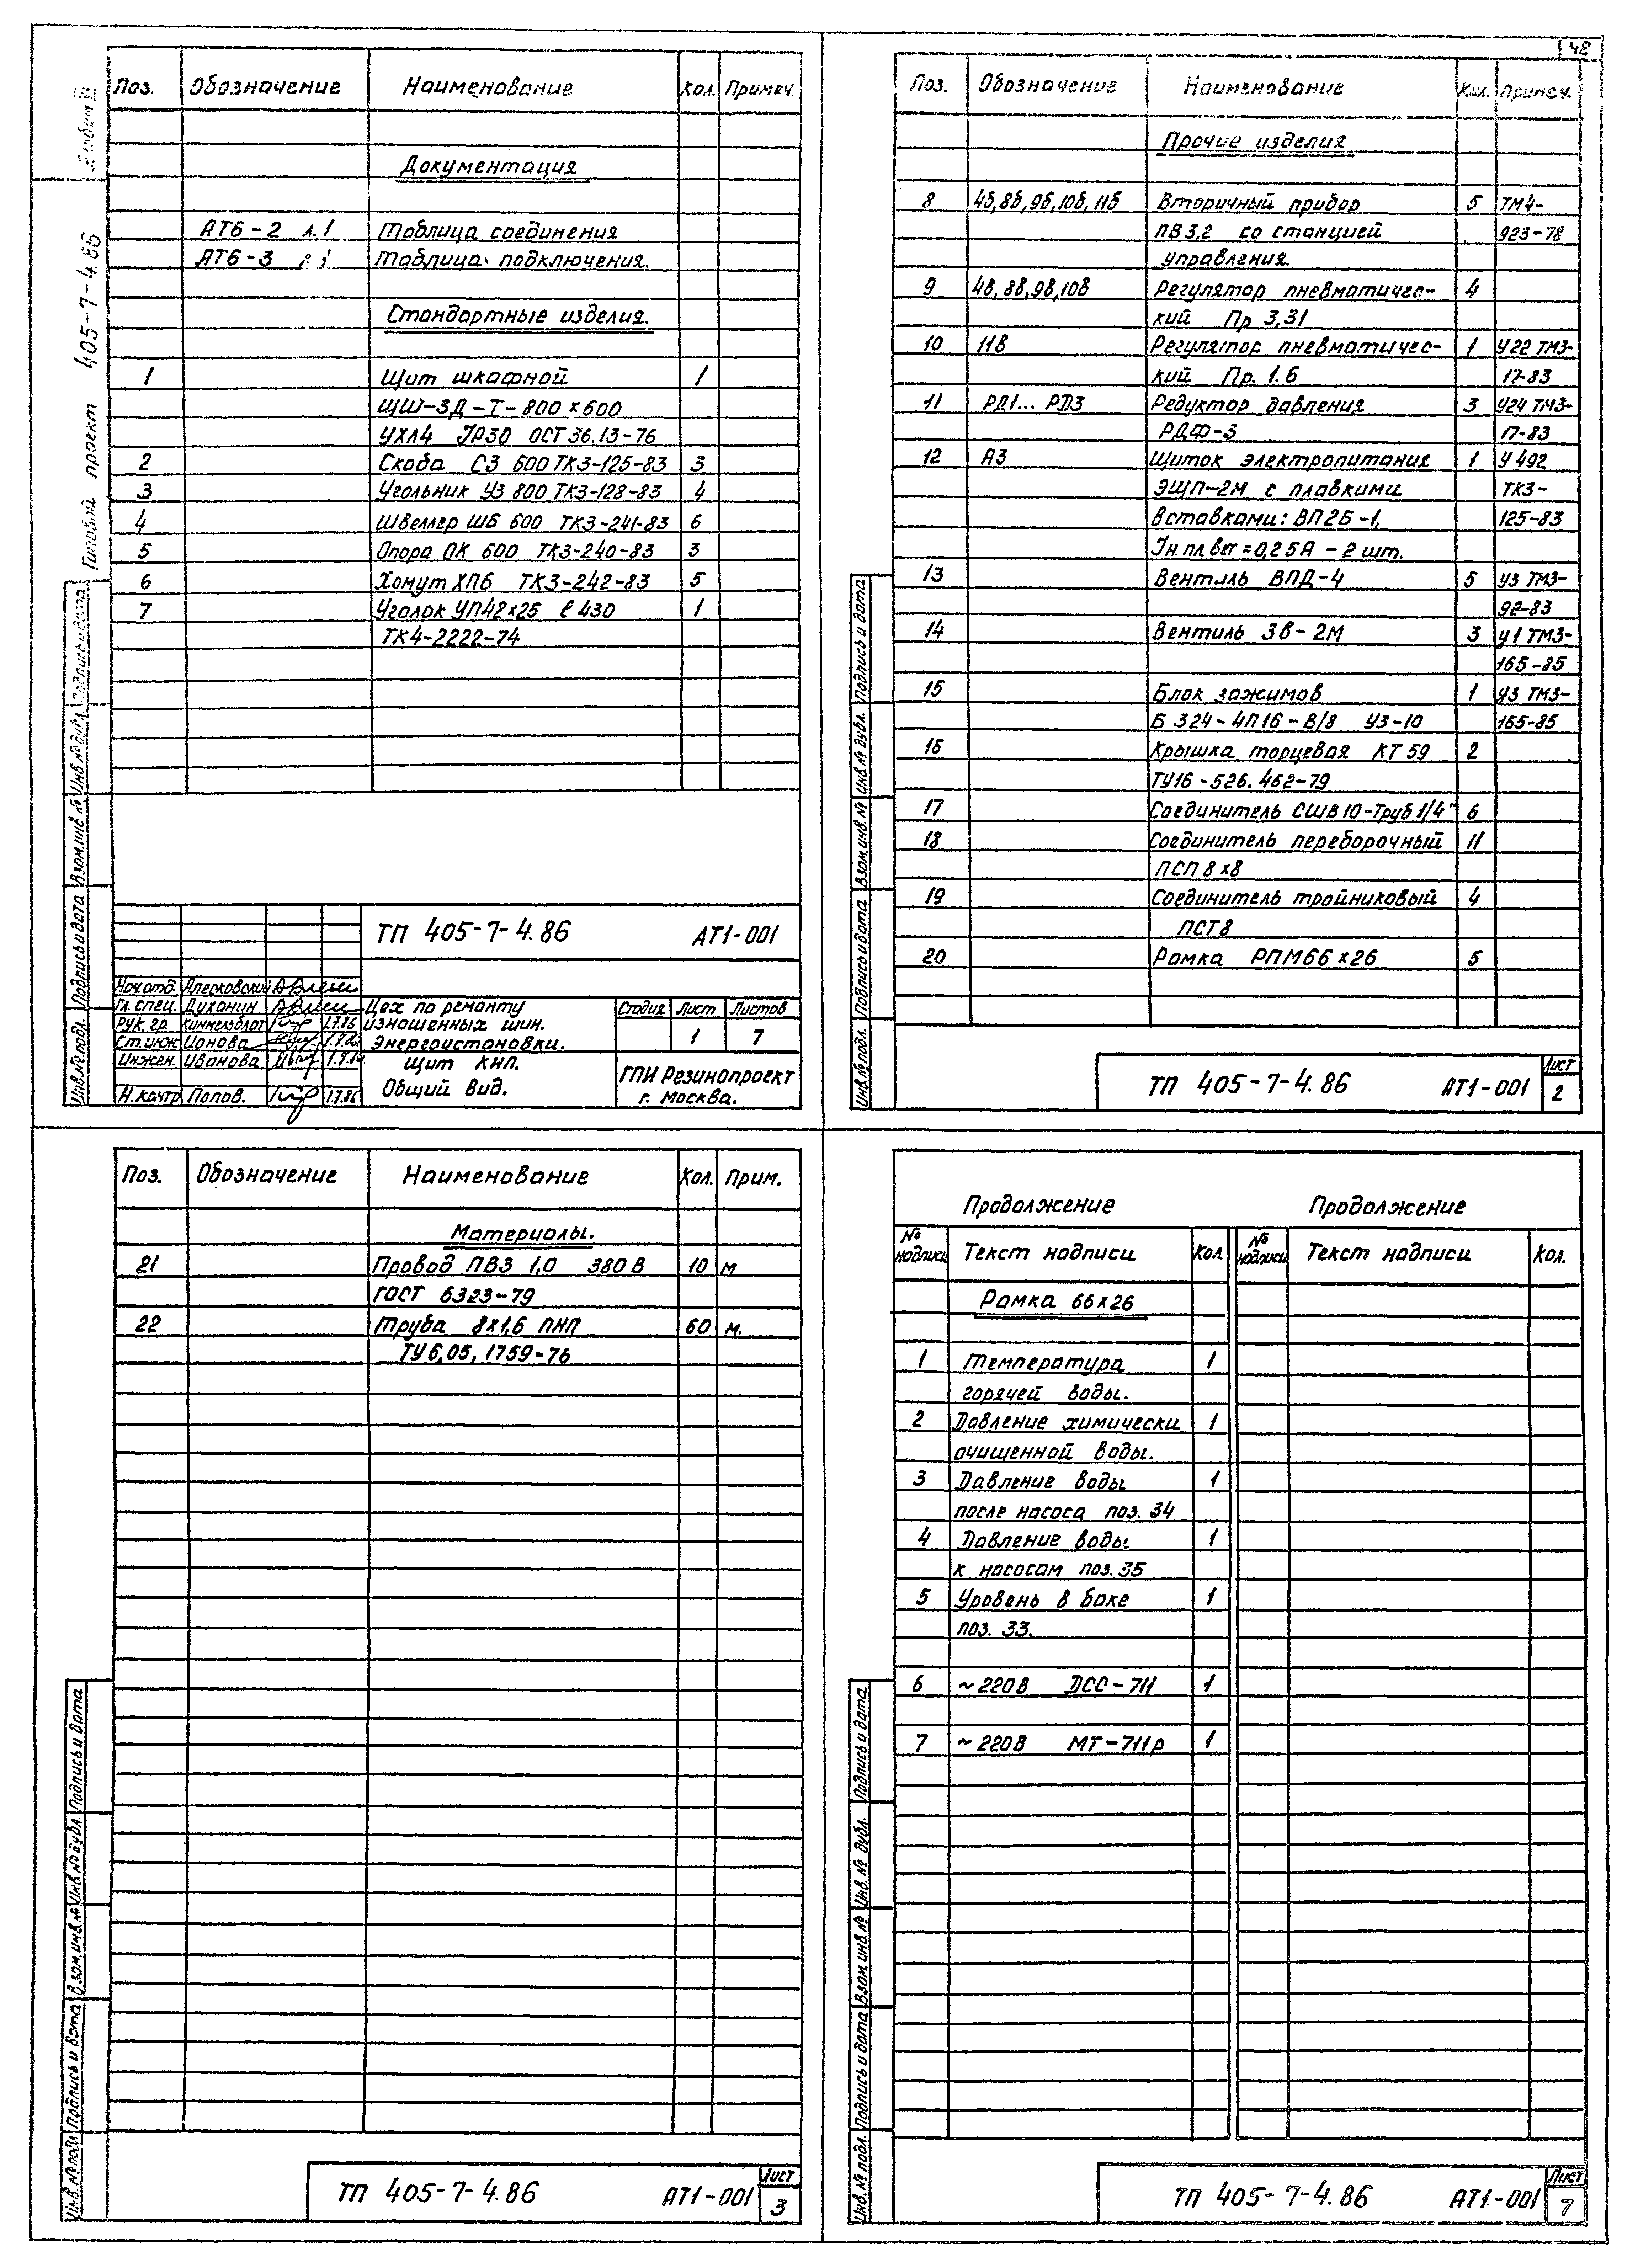 48
Альбом
Типовой проект 405-7-4.86
Поз. Обозначение Наименование Кол. Примеч.
Документация
АТ6-2 л.1 Таблица соединения
АТ6-3 л.1 Таблица подключения.
Стандартные изделия.
1 Щит шкафной 1
ЩШ-3Д-I-800×600
УХЛ4 JP30 ОСТ 36.13-76
2 Скоба С3 600 ТК3-125-83 3
3 Угольник У3 800 ТК3-128-83 4
4 Швеллер ШБ 600 ТК3-241-83 6
5 Опора ОК 600 ТК3-240-83 3
6 Хомут ХП6 ТК3-242-83 5
7 Уголок УП42×25 ℓ 430 1
ТК4-2222-74
Инв.№ подл. Подпись и дата Взам.инв.№ Инв.№ дубл. Подпись и дата
ТП 405-7-4.86 АТ1-001
Нач.отд. Алесковский
Гл. спец. Духанин
Рук. гр. Киммельблат 1.7.86
Ст.инж Ионова
Инжен. Иванова
Н.контр Попов. 1.7.86
Цех по ремонту
изношенных шин.
Энергоустановки.
Щит КИП.
Общий вид.
Стадия Лист Листов
1 7
ГПИ Резинопроект
г. Москва.
Поз. Обозначение Наименование Кол. Примеч.
Прочие изделия
8 4б,8б,9б,10б,11б Вторичный прибор 5 ТМ4-
ПВ3,2 со станцией 923-78
управления.
9 4в,8в,9в,10в Регулятор пневматичес- 4
кий Пр 3,31
10 11в Регулятор пневматичес- 1 У22 ТМ3-
кий Пр. 1.6 17-83
11 РД1... РД3 Редуктор давления 3 У24 ТМ3-
РДФ-3 17-83
12 А3 Щиток электропитания 1 У 492
ЭЩП-2М с плавкими ТК3-
вставками: ВП2Б-1, 125-83
Jн пл вст = 0,25А - 2 шт.
13 Вентиль ВПД-4 5 У3 ТМ3-
92-83
14 Вентиль 3в-2М 3 У1 ТМ3-
165-85
15 Блок зажимов 1 У3 ТМ3-
Б 324-4П16-В/8 У3-10 165-85
16 Крышка торцевая КТ 59 2
ТУ16-526.462-79
17 Соединитель СШВ10-Труб 1/4" 6
18 Соединитель переборочный 11
ПСП 8×8
19 Соединитель тройниковый 4
ПСТ8
20 Рамка РПМ66×26 5
Инв.№ подл. Подпись и дата Взам.инв.№ Инв.№ дубл. Подпись и дата
ТП 405-7-4.86 АТ1-001 Лист 2
Поз. Обозначение Наименование Кол. Прим.
Материалы.
21 Провод ПВ3 1,0 380 В 10 м
ГОСТ 6323-79
22 Труба 8×1,6 ПНП 60 м.
ТУ6,05,1759-76
Инв.№ подл Подпись и дата Взам.инв.№ Инв.№ дубл. Подпись и дата
ТП 405-7-4.86 АТ1-001 Лист 3
Продолжение Продолжение
№ надписи Текст надписи Кол. № надписи Текст надписи Кол.
Рамка 66×26
1 Температура 1
горячей воды.
2 Давление химически 1
очищенной воды.
3 Давление воды 1
после насоса поз. 34
4 Давление воды 1
к насосам поз. 35
5 Уровень в баке 1
поз. 33.
6 ~220В ДСС-711 1
7 ~220В МТ-711р 1
Инв.№ подл. Подпись и дата Взам.инв.№ Инв.№ дубл. Подпись и дата
ТП 405-7-4.86 АТ1-001 Лист 7